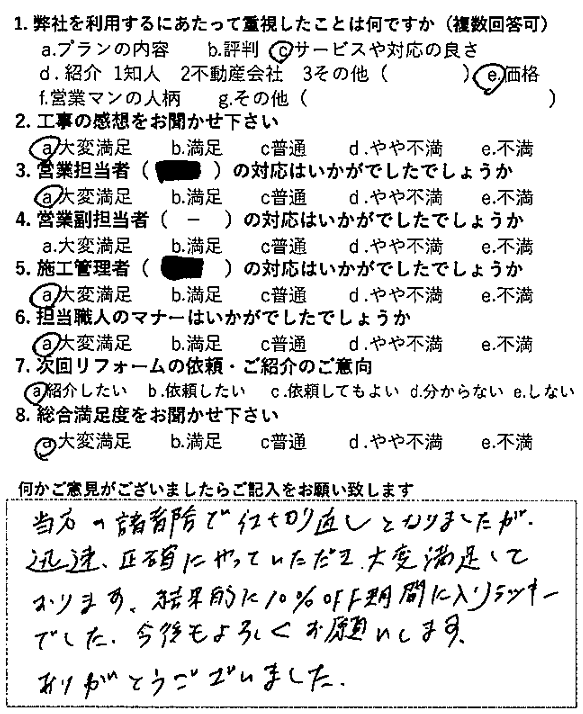 1. 弊社を利用するにあたって重視したことは何ですか（複数回答可）
a.プランの内容 b.評判 c.サービスや対応の良さ
d.紹介 1知人 2不動産会社 3その他（ ）e.価格
f.営業マンの人柄 g.その他（ ）
2. 工事の感想をお聞かせ下さい
a大変満足 b.満足 c普通 d.やや不満 e.不満
3. 営業担当者（ ）の対応はいかがでしたでしょうか
a大変満足 b.満足 c普通 d.やや不満 e.不満
4. 営業副担当者（ － ）の対応はいかがでしたでしょうか
a.大変満足 b.満足 c普通 d.やや不満 e.不満
5. 施工管理者（ ）の対応はいかがでしたでしょうか
a大変満足 b.満足 c普通 d.やや不満 e.不満
6. 担当職人のマナーはいかがでしたでしょうか
a大変満足 b.満足 c普通 d.やや不満 e.不満
7. 次回リフォームの依頼・ご紹介のご意向
a紹介したい b.依頼したい c.依頼してもよい d.分からない e.しない
8. 総合満足度をお聞かせ下さい
a大変満足 b.満足 c普通 d.やや不満 e.不満
何かご意見がございましたらご記入をお願い致します
当方の諸着陸で仕切り直しとなりましたが、
迅速、正確にやっていただき大変満足して
おります。結果的に10%OFF期間に入りラッキー
でした。今後もよろしくお願いします。
ありがとうございました。